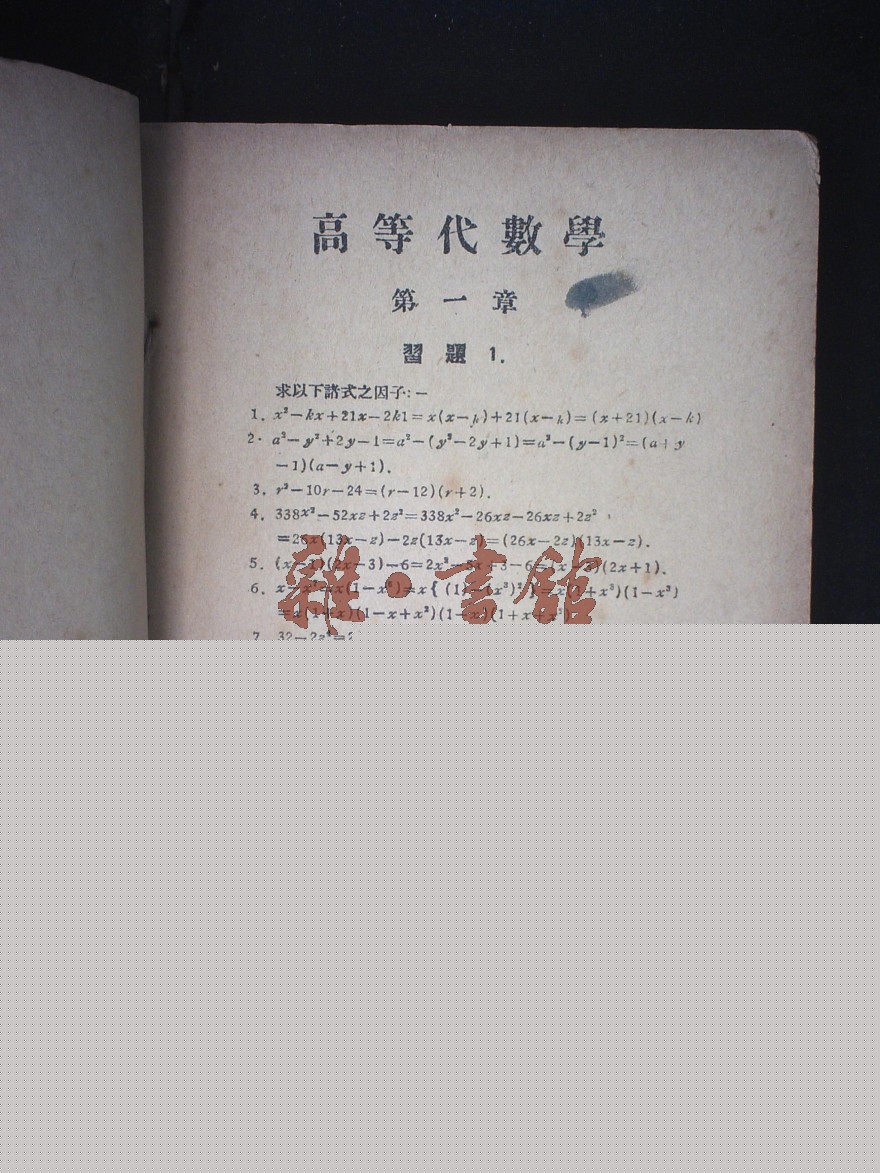 高等代數學
第一章
習題 1.
求以下諸式之因子:—
1. x²－kx＋21x－2k1＝x(x－k)＋21(x－k)＝(x＋21)(x－k)
2. a²－y²＋2y－1＝a²－(y²－2y＋1)＝a²－(y－1)²＝(a＋y
－1)(a－y＋1).
3. r²－10r－24＝(r－12)(r＋2).
4. 338x²－52xz＋2z²＝338x²－26xz－26xz＋2z²
＝26x(13x－z)－2z(13x－z)＝(26x－2z)(13x－z).
5. (x－1)(2x－3)－6＝2x²－5x＋3－6＝(x－3)(2x＋1).
6. x－x⁷＝x(1－x⁶)＝x{(1)²－(x³)²}＝x(1＋x³)(1－x³)
＝x(1＋x)(1－x＋x²)(1－x)(1＋x＋x²)
7. 32－2z⁴＝2
雜·書館